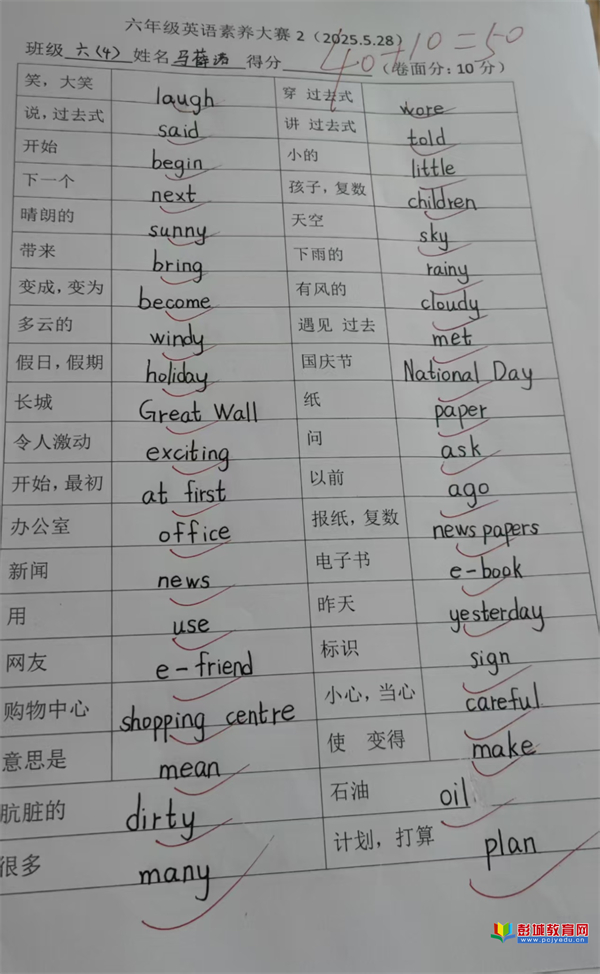 六年级英语素养大赛 2（2025.5.28）
40+10=50
班级 六（4） 姓名 得分 （卷面分：10 分）
笑，大笑 laugh 穿 过去式 wore
说，过去式 said 讲 过去式 told
开始 begin 小的 little
下一个 next 孩子，复数 children
晴朗的 sunny 天空 sky
带来 bring 下雨的 rainy
变成，变为 become 有风的 cloudy
多云的 windy 遇见 过去 met
假日，假期 holiday 国庆节 National Day
长城 Great Wall 纸 paper
令人激动 exciting 问 ask
开始，最初 at first 以前 ago
办公室 office 报纸，复数 newspapers
新闻 news 电子书 e-book
用 use 昨天 yesterday
网友 e-friend 标识 sign
购物中心 shopping centre 小心，当心 careful
意思是 mean 使 变得 make
肮脏的 dirty 石油 oil
很多 many 计划，打算 plan
彭城教育网
www.pcjyedu.cn